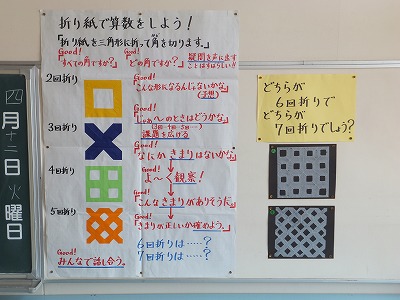 四月十二日火曜日
折り紙で算数をしよう！
「折り紙を三角形に折って角を切ります。」
Good!
「すべての角ですか？」
Good!
「どの角ですか？」
疑問を声に出す
ことはすばらしい!!
2回折り
Good!
「こんな形になるんじゃないかな」
(予想)
3回折り
Good!
「じゃあ〜のときはどうかな」
(3回・4回・5回…)
課題を広げる
Good!
「なにか きまりはないかな」
4回折り
Good!
よ〜く観察！
Good!
「こんなきまりがありそうだ」
5回折り
Good!
「きまりが正しいか確めよう。」
Good!
みんなで話し合う。
6回折りは……？
7回折りは……？
どちらが
6回折りで
どちらが
7回折りでしょう？